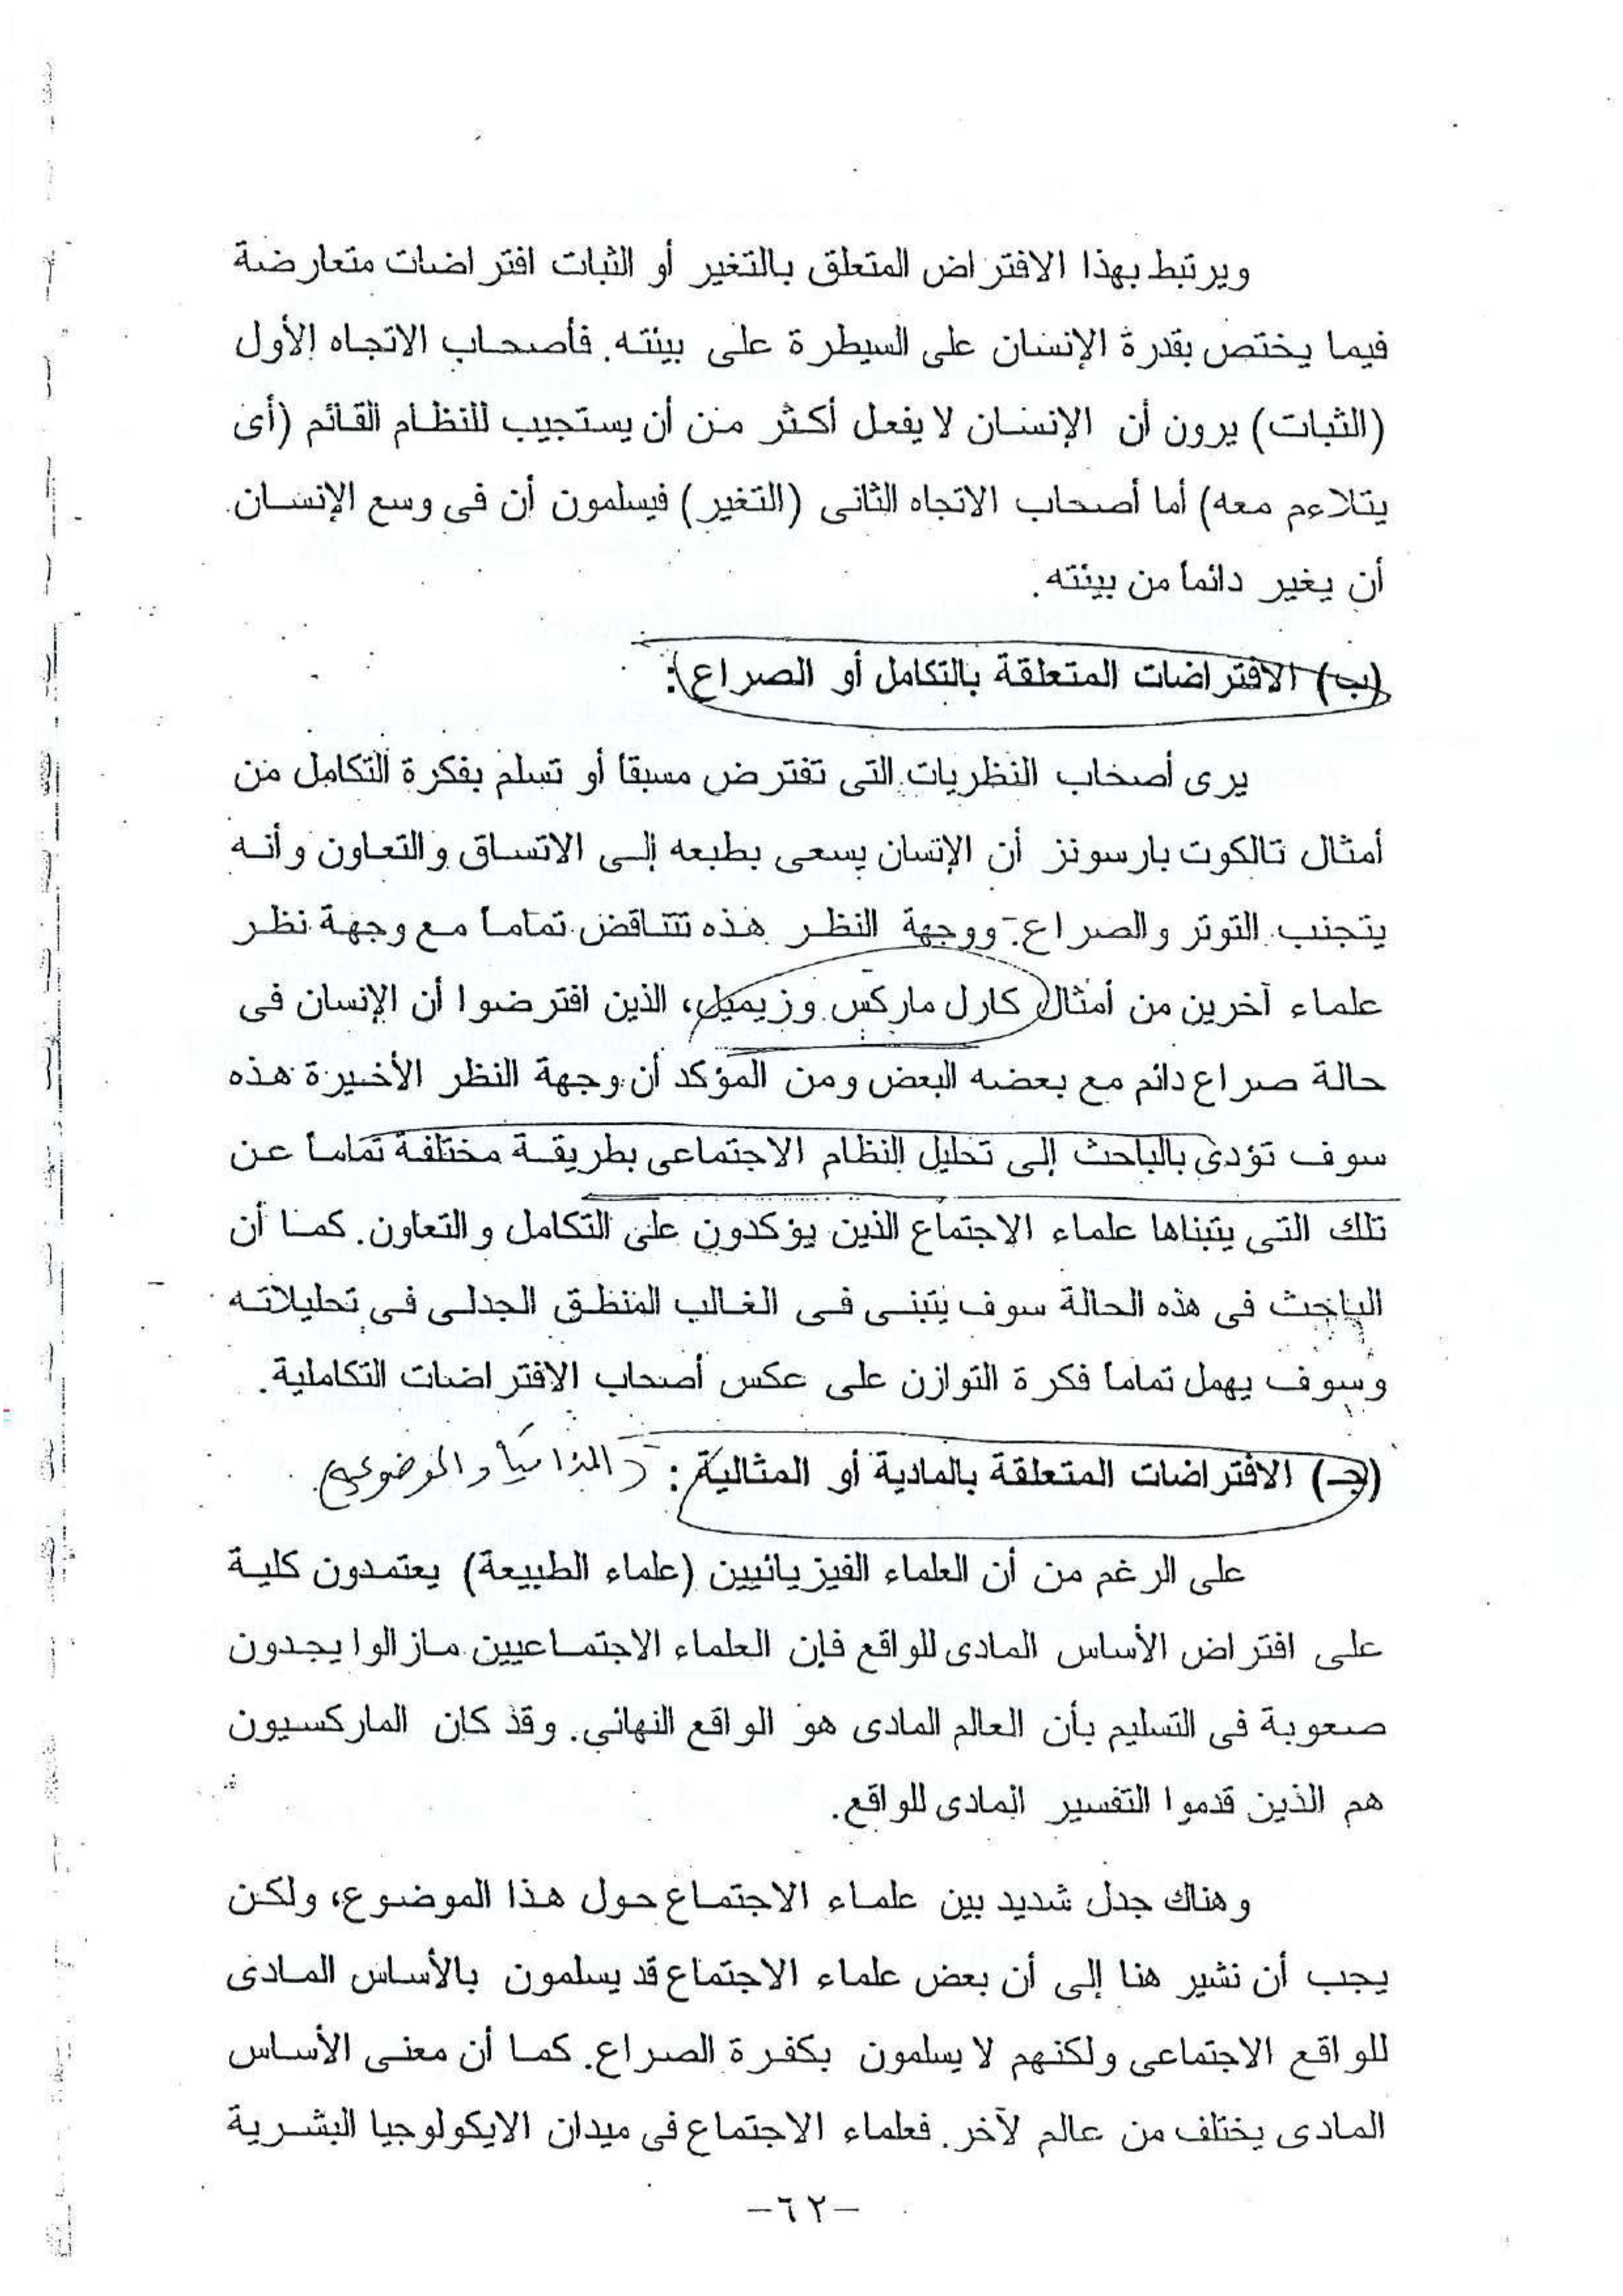 ويرتبط بهذا الافتراض المتعلق بالتغير أو الثبات افتراضات متعارضة
فيما يختص بقدرة الإنسان على السيطرة على بيئته. فأصحاب الاتجاه الأول
(الثبات) يرون أن الإنسان لا يفعل أكثر من أن يستجيب للنظام القائم (أى
يتلاءم معه) أما أصحاب الاتجاه الثانى (التغير) فيسلمون أن فى وسع الإنسان
أن يغير دائماً من بيئته.
(ب) الافتراضات المتعلقة بالتكامل أو الصراع:
يرى أصحاب النظريات التى تفترض مسبقا أو تسلم بفكرة التكامل من
أمثال تالكوت بارسونز أن الإنسان يسعى بطبعه إلى الاتساق والتعاون وأنه
يتجنب التوتر والصراع. ووجهة النظر هذه تتناقض تماماً مع وجهة نظر
علماء آخرين من أمثال كارل ماركس وزيميل، الذين افترضوا أن الإنسان فى
حالة صراع دائم مع بعضه البعض ومن المؤكد أن وجهة النظر الأخيرة هذه
سوف تؤدى بالباحث إلى تحليل النظام الاجتماعى بطريقة مختلفة تماماً عن
تلك التى يتبناها علماء الاجتماع الذين يؤكدون على التكامل والتعاون. كما أن
الباحث فى هذه الحالة سوف يتبنى فى الغالب المنطق الجدلى فى تحليلاته
وسوف يهمل تماما فكرة التوازن على عكس أصحاب الافتراضات التكاملية.
(جـ) الافتراضات المتعلقة بالمادية أو المثالية: والموضوعية
على الرغم من أن العلماء الفيزيائيين (علماء الطبيعة) يعتمدون كلية
على افتراض الأساس المادى للواقع فإن العلماء الاجتماعيين مازالوا يجدون
صعوبة فى التسليم بأن العالم المادى هو الواقع النهائي. وقد كان الماركسيون
هم الذين قدموا التفسير المادى للواقع.
وهناك جدل شديد بين علماء الاجتماع حول هذا الموضوع، ولكن
يجب أن نشير هنا إلى أن بعض علماء الاجتماع قد يسلمون بالأساس المادى
للواقع الاجتماعى ولكنهم لا يسلمون بكفرة الصراع. كما أن معنى الأساس
المادى يختلف من عالم لآخر. فعلماء الاجتماع فى ميدان الايكولوجيا البشرية
-٦٢-